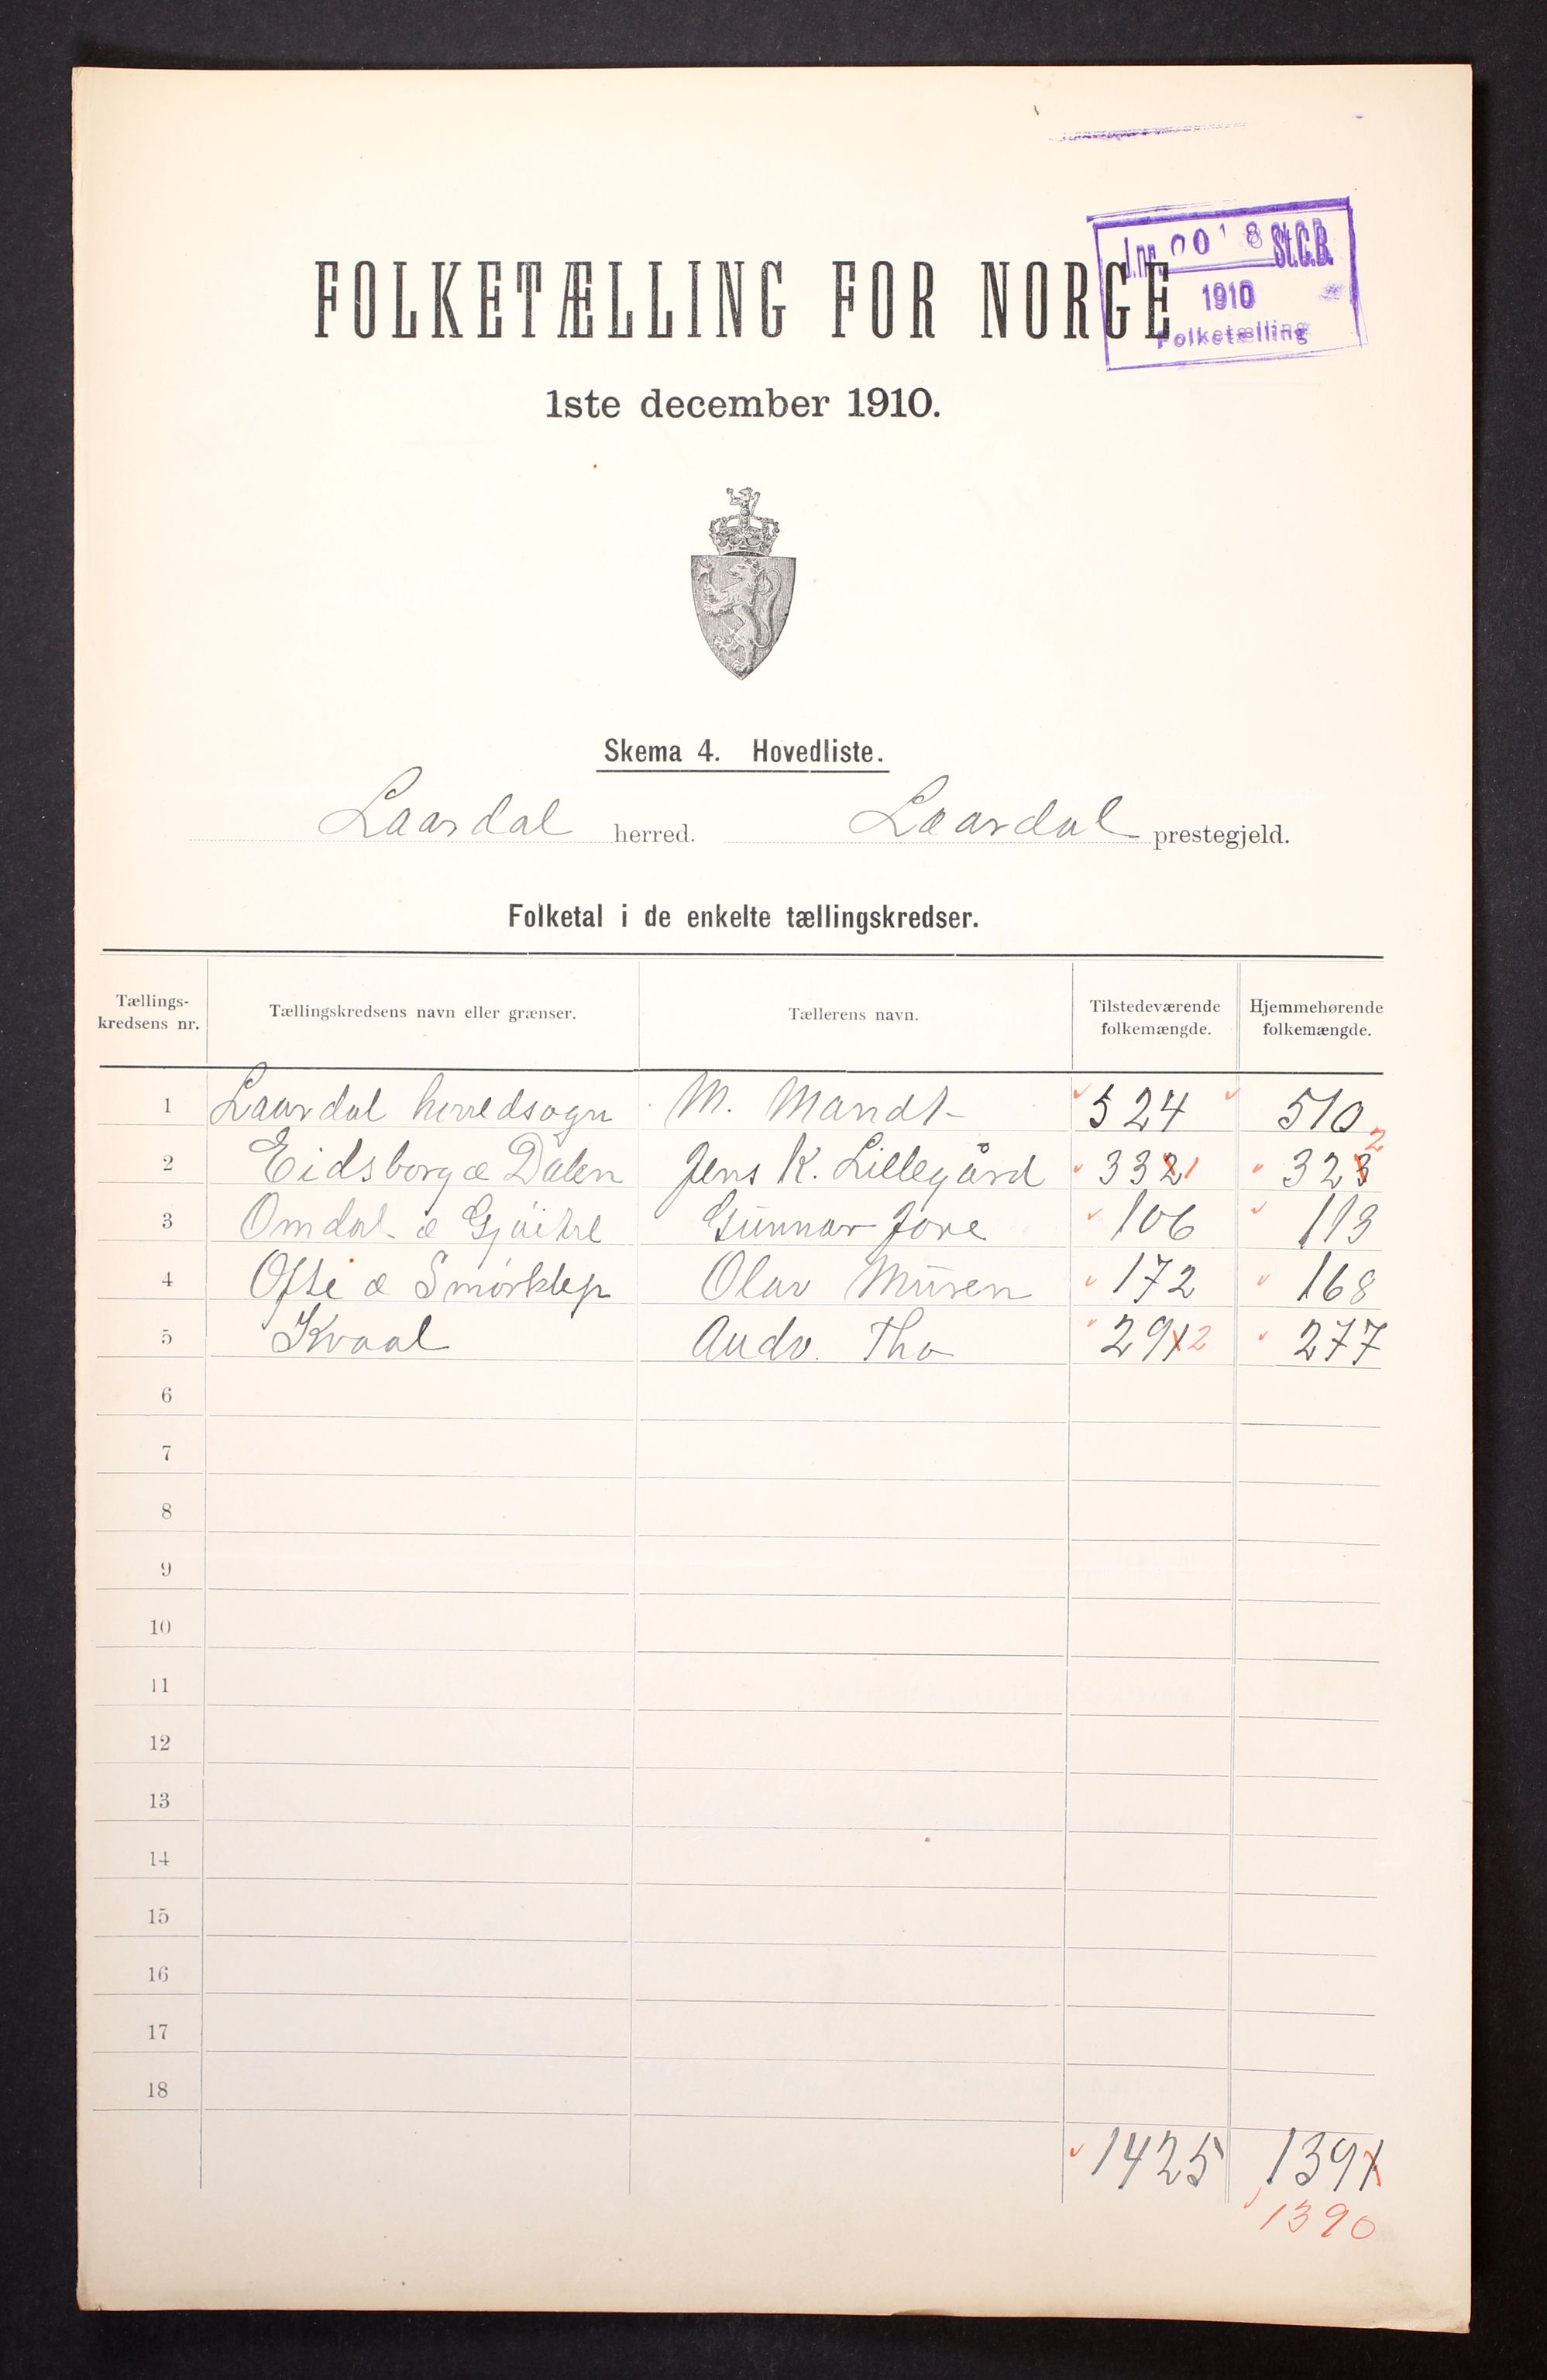 J.nr. 0018 St.C.B.
1910
Folketælling
FOLKETÆLLING FOR NORGE
1ste december 1910.
Skema 4. Hovedliste.
Laardal herred. Laardal prestegjeld.
Folketal i de enkelte tællingskredser.
Tællings-kredsens nr. Tællingskredsens navn eller grænser. Tællerens navn. Tilstedeværende folkemængde. Hjemmehørende folkemængde.
1 Laardal herredsogn M. Mandt 524 510
2 Eidsborg æ Dalen Jens K. Lillegård 332 1 323 2
3 Omdal æ Gunnar Jore 106 113
4 Ofte æ Smørklep Olav Muren 172 168
5 Kvaal Andv. Tho 291 2 277
6
7
8
9
10
11
12
13
14
15
16
17
18
1425 1391
1390